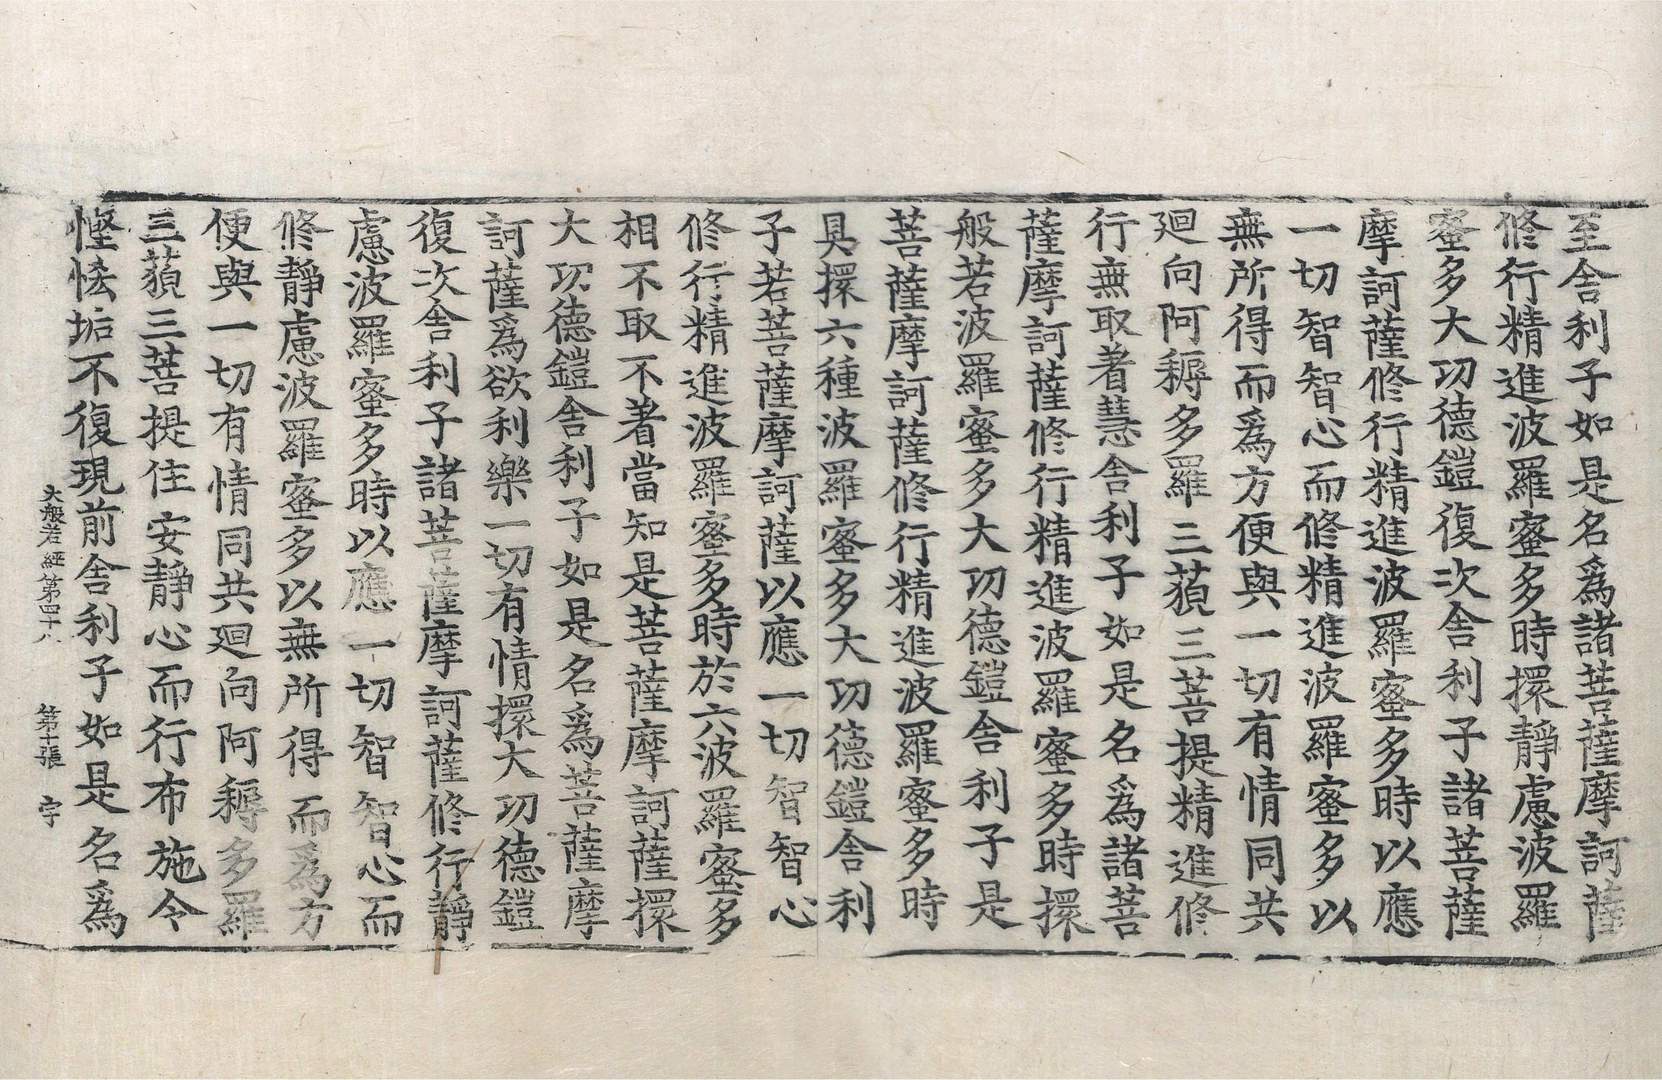 至舍利子如是名爲諸菩薩摩訶薩
修行精進波羅蜜多時擐靜慮波羅
蜜多大功德鎧復次舍利子諸菩薩
摩訶薩修行精進波羅蜜多時以應
一切智智心而修精進波羅蜜多以
無所得而爲方便與一切有情同共
廻向阿耨多羅三藐三菩提精進修
行無取著慧舍利子如是名爲諸菩
薩摩訶薩修行精進波羅蜜多時擐
般若波羅蜜多大功德鎧舍利子是
菩薩摩訶薩修行精進波羅蜜多時
具擐六種波羅蜜多大功德鎧舍利
子若菩薩摩訶薩以應一切智智心
修行精進波羅蜜多時於六波羅蜜多
相不取不著當知是菩薩摩訶薩擐
大功德鎧舍利子如是名爲菩薩摩
訶薩爲欲利樂一切有情擐大功德鎧
復次舍利子諸菩薩摩訶薩修行靜
慮波羅蜜多時以應一切智智心而
修靜慮波羅蜜多以無所得而爲方
便與一切有情同共廻向阿耨多羅
三藐三菩提住安靜心而行布施令
慳悋垢不復現前舍利子如是名爲
大般若經第四十八 第十張 宇